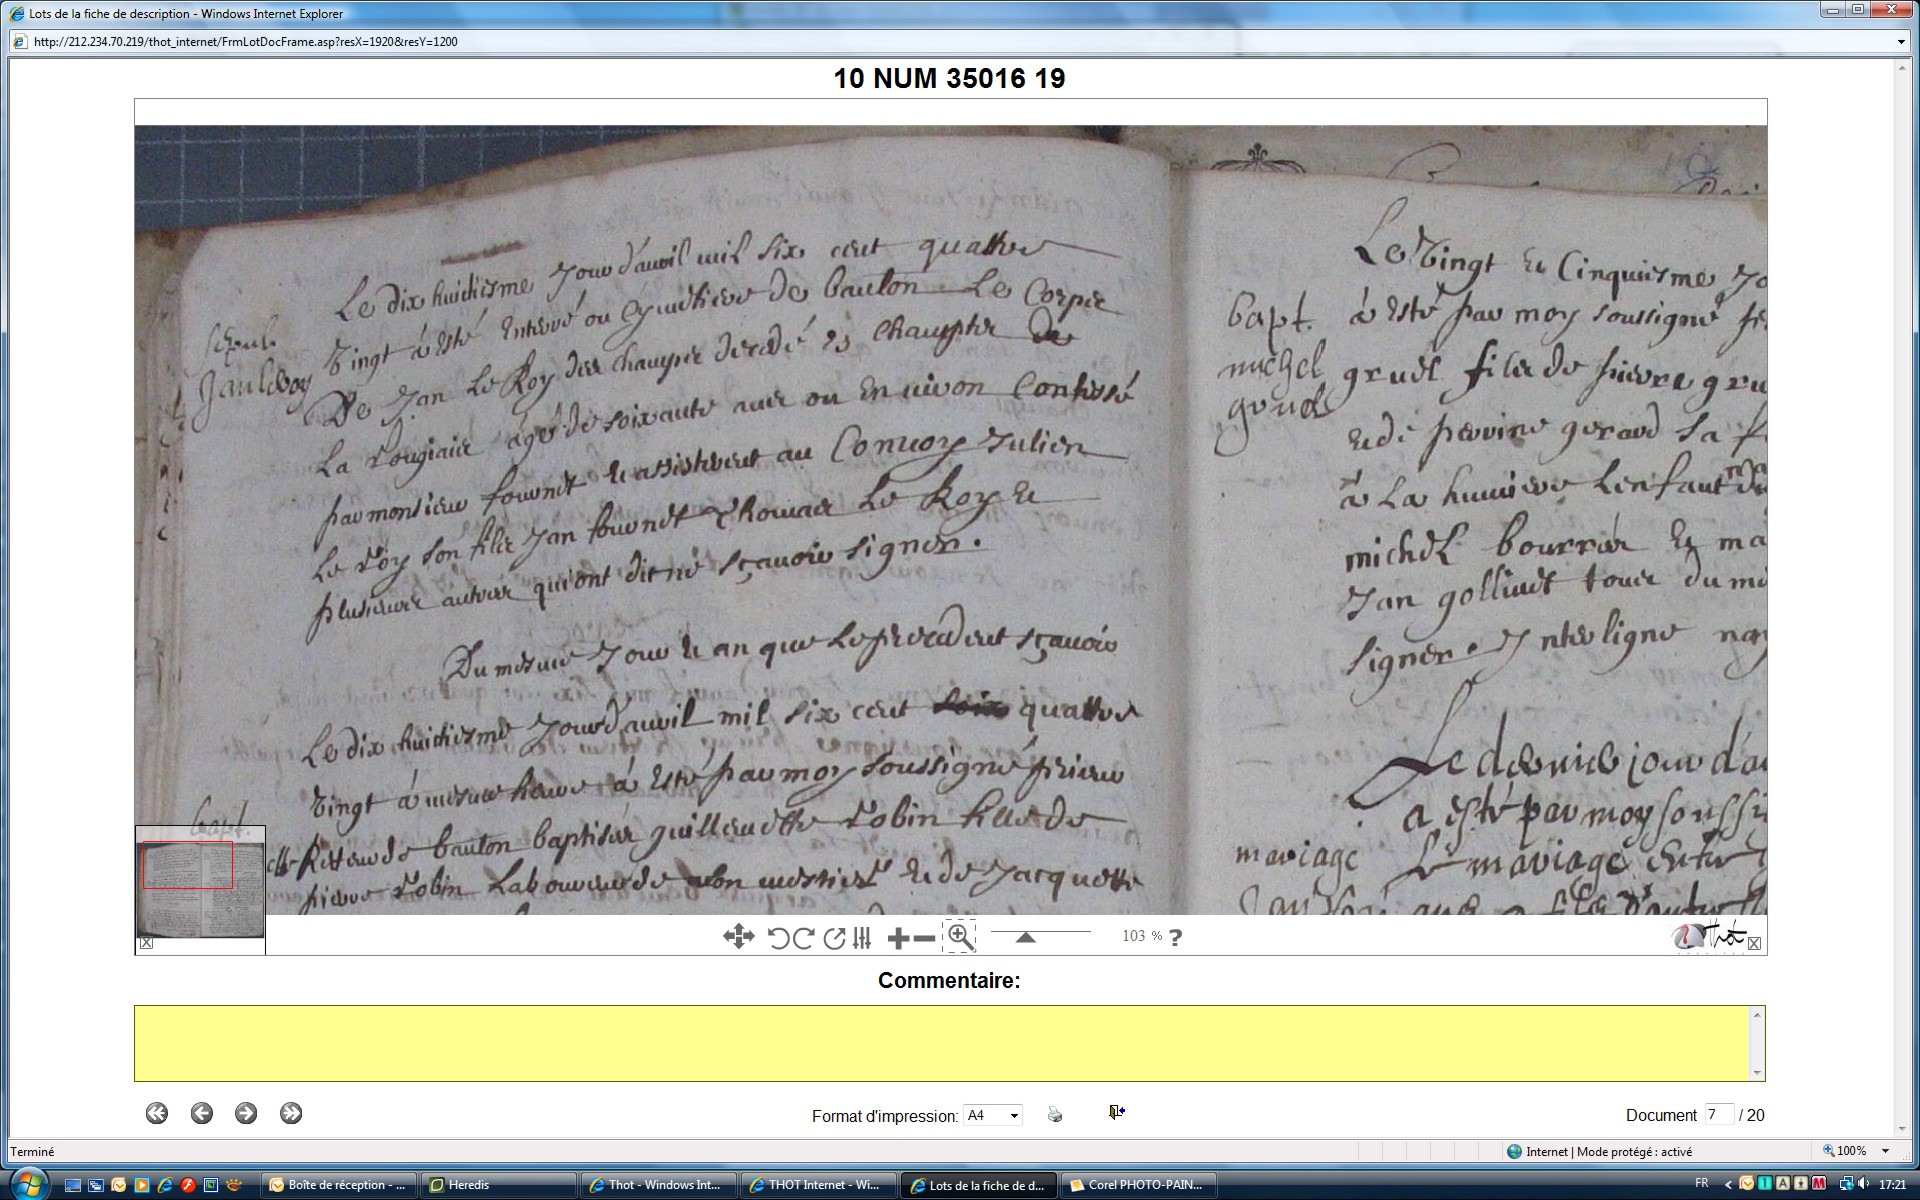 Lots de la fiche de description - Windows Internet Explorer
http://212.234.70.219/thot_internet/FrmLotDocFrame.asp?resX=1920&resY=1200
10 NUM 35016 19
Le dix huictiesme Jour d'auvil mil six cent quattre
Vingt à esté Enterré ou Cymetiere de baulon Le Corps
De Jan Le Roy des champs decedé es champs de
La agé de soixante ans ou Environ Confessé
par monsieur fournet et assisterent au Convoy Julien
Le Roy son fils Jan fournet Thomas Le Roy Et
plusieurs autres qui ont dit ne sçavoir signer.
Jan Leroy
Du mesme Jour et an que Le precedent sçavoir
Le dix huictiesme Jour d'auvil mil six cent quattre
Vingt à mesme heure à Esté par moy soussigné prieur
Recteur de baulon baptisée guillemette Robin fille de
bapt.
pierre Robin Laboureur de son mestier Et de Jacquette
Le Vingt Et Cinquiesme Jo
bapt. à Esté par moy soussigné
michel gruel fils de pierre gru
gruel
Et de perrine gerard sa f
à La Lenfant
michel bourrier Et ma
Jan du m
signer. Interligne
Le dernier jour d'a
a esté par moy soussi
mariage Le mariage Entre
103 % ?
Thot
Commentaire:
Format d'impression: A4
Document 7 / 20
Terminé
Internet | Mode protégé : activé
100%
Boîte de réception - ...
Heredis
Thot - Windows Int...
THOT Internet - Wi...
Lots de la fiche de d...
Corel PHOTO-PAIN...
FR
17:21